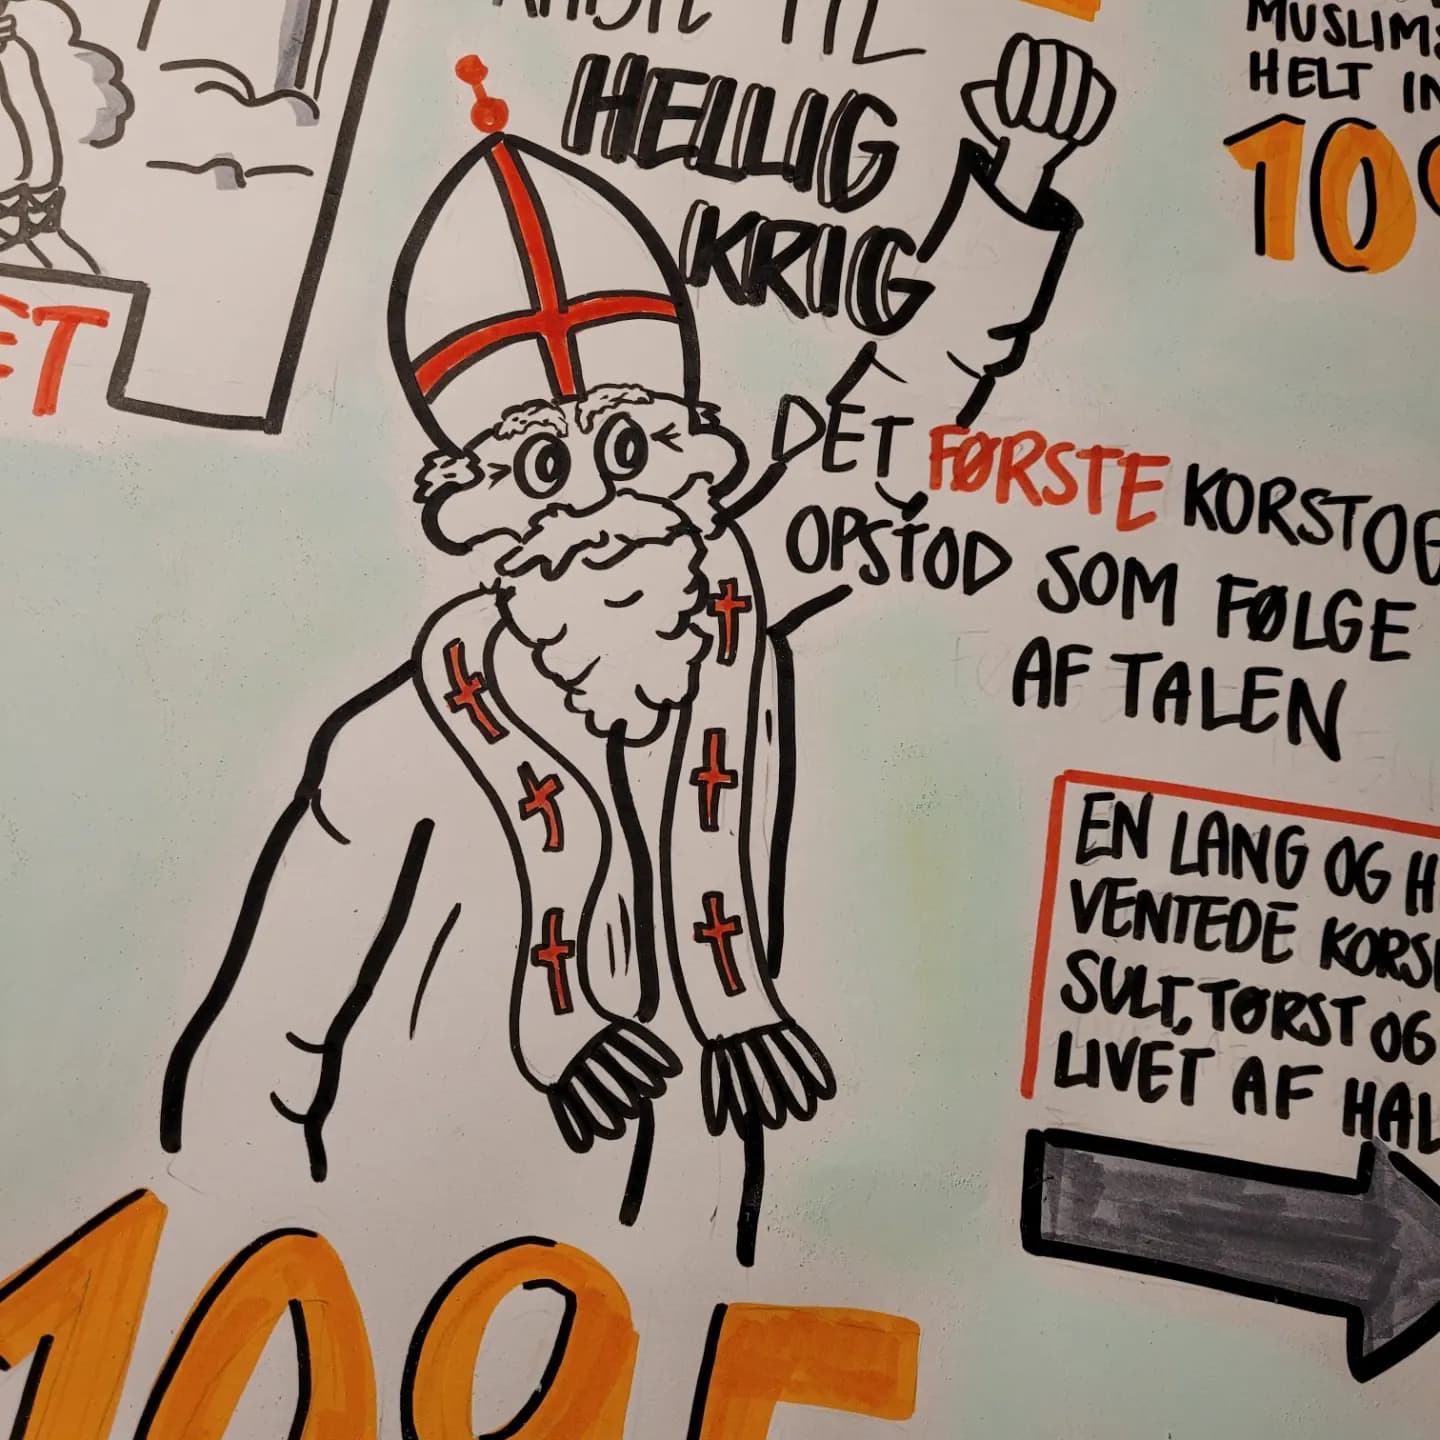 TIL
HELLIG
KRIG
MUSLIM
HELT
10
ET
DET FØRSTE KORSTOG
OPSTOD SOM FØLGE
AF TALEN
EN LANG OG H
VENTEDE KORS
SULT, TØRST OG
LIVET AF HAL
1095